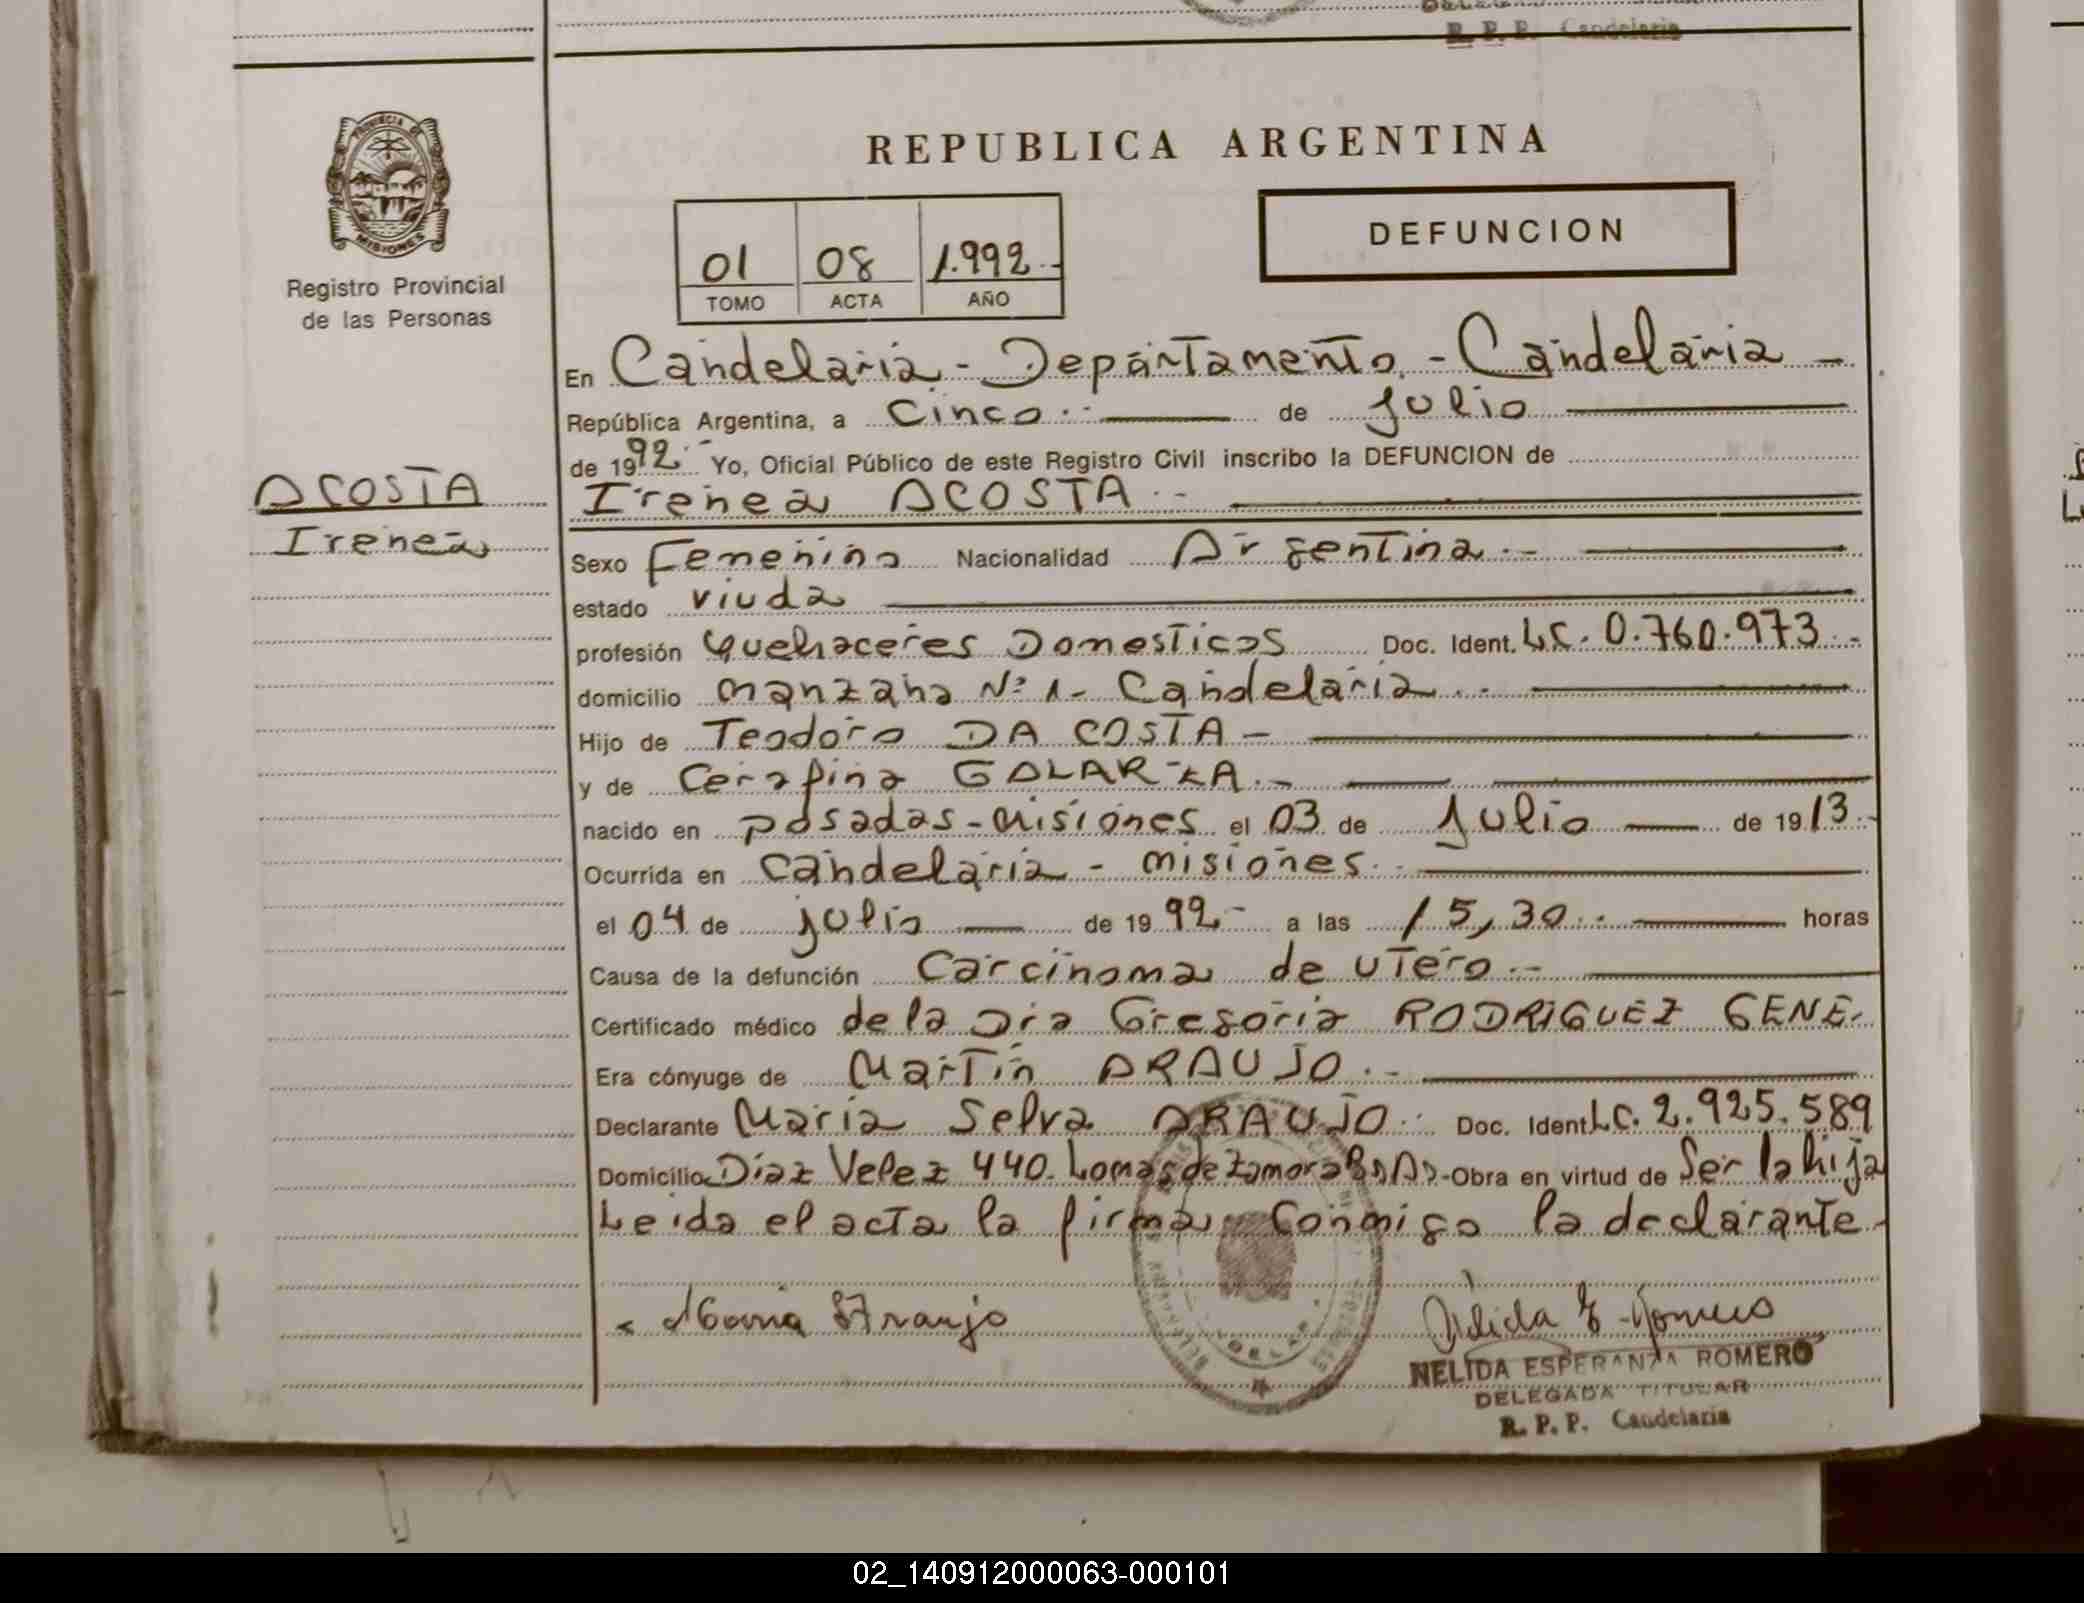 R. P. P. Candelaria
PROVINCIA DE
MISIONES
Registro Provincial
de las Personas
REPUBLICA ARGENTINA
DEFUNCION
01 08 1.992.-
TOMO ACTA AÑO
En Candelaria - Departamento - Candelaria -
República Argentina, a Cinco.- de julio
de 1992.- Yo, Oficial Público de este Registro Civil inscribo la DEFUNCION de
Irenea ACOSTA.-
ACOSTA
Irenea
Sexo Femenino Nacionalidad Argentina.-
estado viuda
profesión Quehaceres Domesticos Doc. Ident. L.C. 0.760.973.-
domicilio Manzana Nº 1 - Candelaria.-
Hijo de Teodoro DA COSTA -
y de Cerafina GALARZA.-
nacido en posadas - Misiones el 03 de julio de 1913.-
Ocurrida en Candelaria - misiones.-
el 04 de julio de 1992- a las 15,30.- horas
Causa de la defunción Carcinoma de utero.-
Certificado médico de la Dra Gregoria RODRIGUEZ GENE.
Era cónyuge de Martin ARAUJO.-
Declarante Maria Selva ARAUJO. Doc. Ident. L.C. 2.925.589
Domicilio Diaz Velez 440. Lomas de Zamora Bs As - Obra en virtud de Ser la hija
Leida el acta la firma Conmigo la declarante.
Maria S Araujo
Nélida E. Romero
NELIDA ESPERANZA ROMERO
DELEGADA TITULAR
R. P. P. Candelaria
02_140912000063-000101